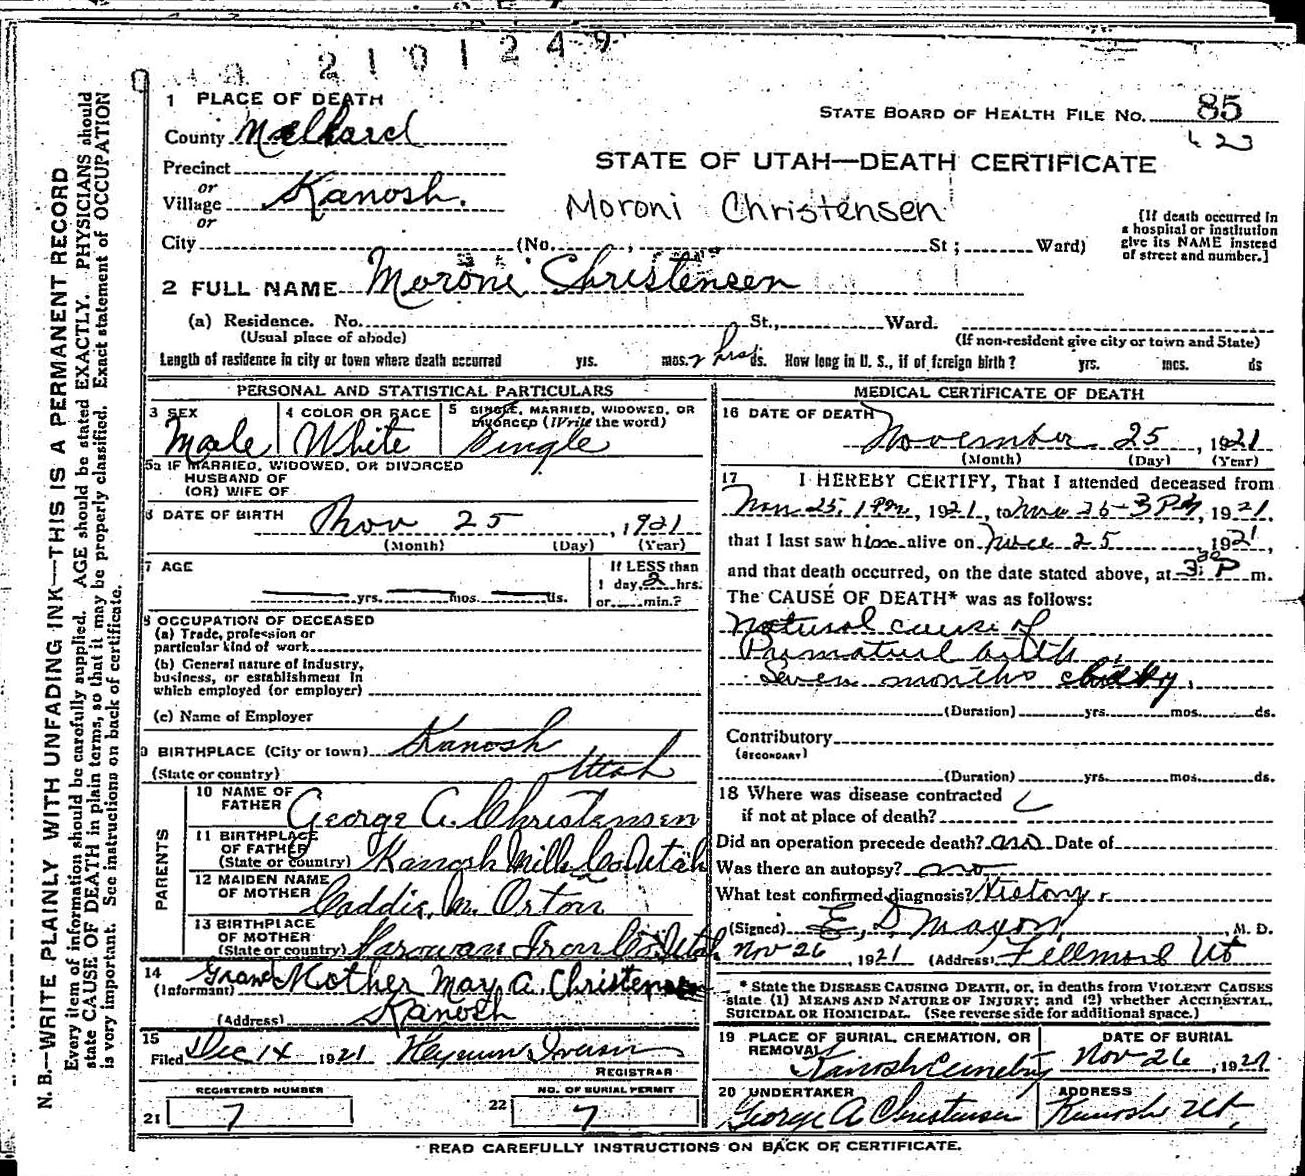 2101249
1 PLACE OF DEATH
STATE BOARD OF HEALTH FILE NO. 85
County Millard
23
Precinct
STATE OF UTAH—DEATH CERTIFICATE
or
Village Kanosh.
or
Moroni Christensen
[If death occurred in
a hospital or institution
give its NAME instead
of street and number.]
City (No. , St ; Ward)
2 FULL NAME Moroni Christensen
(a) Residence. No. St., Ward.
(Usual place of abode) (If non-resident give city or town and State)
Length of residence in city or town where death occurred yrs. mos. 2 hrs ds. How long in U. S., if of foreign birth? yrs. mos. ds
PERSONAL AND STATISTICAL PARTICULARS
3 SEX Male
4 COLOR OR RACE White
5 SINGLE, MARRIED, WIDOWED, OR
DIVORCED (Write the word)
Single
5a IF MARRIED, WIDOWED, OR DIVORCED
HUSBAND OF
(OR) WIFE OF
6 DATE OF BIRTH Nov 25, 1921
(Month) (Day) (Year)
7 AGE yrs. mos. ds.
If LESS than
1 day, 2 hrs.
or min.?
8 OCCUPATION OF DECEASED
(a) Trade, profession or
particular kind of work
(b) General nature of industry,
business, or establishment in
which employed (or employer)
(c) Name of Employer
9 BIRTHPLACE (City or town) Kanosh
(State or country) Utah
PARENTS
10 NAME OF
FATHER George A. Christensen
11 BIRTHPLACE
OF FATHER
(State or country) Kanosh Mill Co Utah
12 MAIDEN NAME
OF MOTHER Caddie M. Orton
13 BIRTHPLACE
OF MOTHER
(State or country) Parowan Iron Co Utah
14 Grand Mother May A. Christensen
(Informant)
(Address) Kanosh
15
Filed Dec 14 1921
REGISTRAR
REGISTERED NUMBER
21 7
NO. OF BURIAL PERMIT
22 7
MEDICAL CERTIFICATE OF DEATH
16 DATE OF DEATH
November 25, 1921
(Month) (Day) (Year)
17 I HEREBY CERTIFY, That I attended deceased from
Nov 25, 1 Pm, 1921, to 3 PM, 1921,
that I last saw him alive on 25 1921,
and that death occurred, on the date stated above, at 3 P m.
The CAUSE OF DEATH* was as follows:
Natural cause of
Premature birth
Seven months
(Duration) yrs. mos. ds.
Contributory
(SECONDARY)
(Duration) yrs. mos. ds.
18 Where was disease contracted
if not at place of death?
Did an operation precede death? no Date of
Was there an autopsy? no
What test confirmed diagnosis? History
(Signed) , M. D.
Nov 26, 1921 (Address) Fillmore Ut
* State the DISEASE CAUSING DEATH, or, in deaths from VIOLENT CAUSES
state (1) MEANS AND NATURE OF INJURY; and (2) whether ACCIDENTAL,
SUICIDAL OR HOMICIDAL. (See reverse side for additional space.)
19 PLACE OF BURIAL, CREMATION, OR
REMOVAL
Kanosh Cemetery
DATE OF BURIAL
Nov 26, 1921
20 UNDERTAKER
George A Christensen
ADDRESS
Kanosh Ut,
READ CAREFULLY INSTRUCTIONS ON BACK OF CERTIFICATE.
N. B.—WRITE PLAINLY WITH UNFADING INK—THIS IS A PERMANENT RECORD
Every item of information should be carefully supplied. AGE should be stated EXACTLY. PHYSICIANS should
state CAUSE OF DEATH in plain terms, so that it may be properly classified. Exact statement of OCCUPATION
is very important. See instructions on back of certificate.